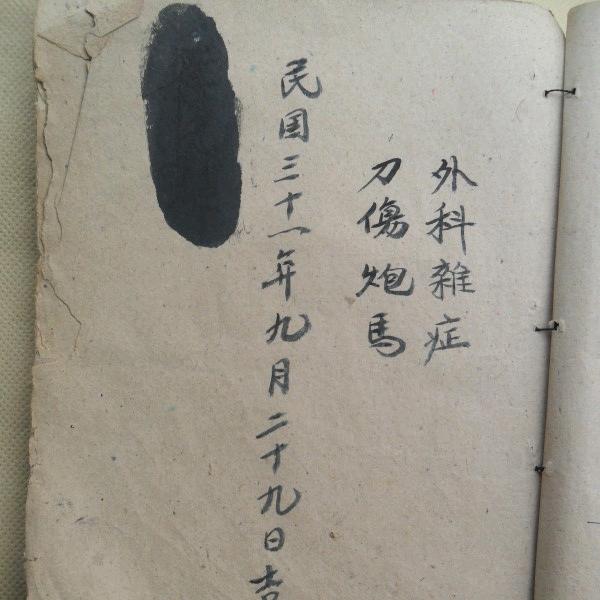 外科雜症
刀傷炮馬
民国三十一年九月二十九日吉